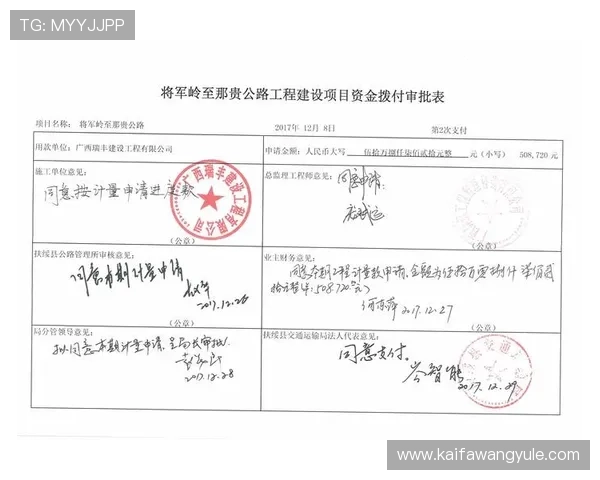 TG: MYYJJPP
将军岭至那贵公路工程建设项目资金拨付审批表
项目名称: 将军岭至那贵公路 2017年 12月 8日 第2次支付
用款单位: 广西瑞丰建设工程有限公司 申请金额: 人民币大写 伍拾万捌仟柒佰贰拾元整 (小写) 508,720 元
施工单位意见:
同意按计量申请进度款
广西瑞丰建设工程有限公司
(公章)
总监理工程师意见:
同意申请
(公章)
扶绥县公路管理所审核意见:
同意本期计量申请
2017.12.26
(公章)
业主财务意见:
同意本期工程计量款申请,金额为伍拾万零捌仟柒佰贰
拾元整(¥:508720元)
2017.12.27
(公章)
局分管领导意见:
拟同意本期计量申请,呈局长审批.
2017.12.28
(公章)
扶绥县交通运输局法人代表意见:
同意支付.
岑智能
2017.12.29
(公章)
www.kaifawangyule.com